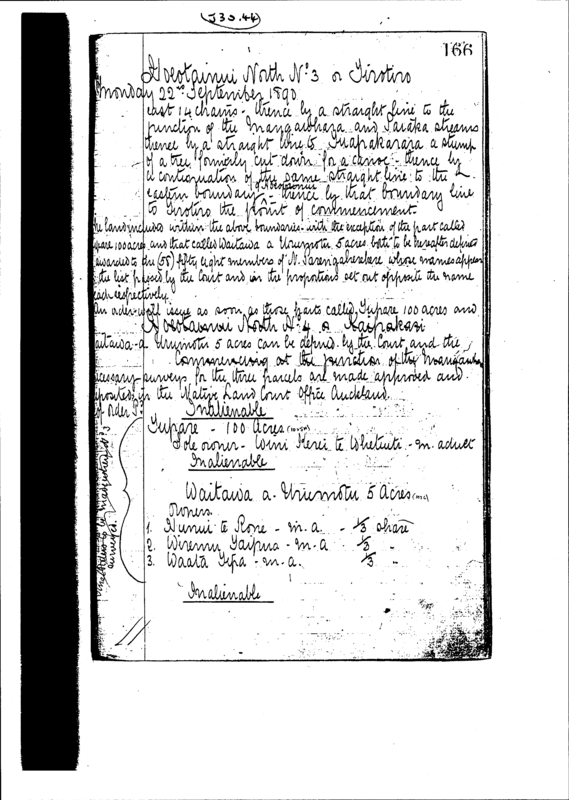 J35.44
166
Hoeotainui North No 3 or Tirotiro
Monday 22nd September 1890
east 14 chains - thence by a straight line to the
junction of the Mangawhara and Taraka streams
thence by a straight line to Tuapakaraka a stump
of a tree formerly cut down for a canoe - thence by
a continuation of the same straight line to the
eastern boundary of Hoeotainui - thence by that boundary line
to Tirotiro the point of commencement.
The land included within the above boundaries with the exception of the part called
Tupare 100 acres and that called Waitawa a Urumotu 5 acres both to be hereafter defined
awarded to the (58) fifty eight members of N. whose names appear
in the list passed by the Court and in the proportions set out opposite the name
each respectively.
An order will issue as soon as those parts called Tupare 100 acres and
Hoeotainui North No 4 or
Waitawa-a-Urumotu 5 acres can be defined by the Court and the
Commencing at the junction of the
necessary surveys for the three parcels are made approved and
deposited in the Native Land Court Office Auckland.
of Order
Inalienable
Tupare - 100 Acres
Sole owner - Wini Kerei te Whetuiti - m. adult
Inalienable
Waitawa a. Urumotu 5 Acres
Owners
1. Hunui te Rore - m. a - 1/3 share
2. Wiremu Taipua - m. a 1/3 "
3. Waata Tipa - m. a. 1/3 "
Inalienable
to be
surveyed.